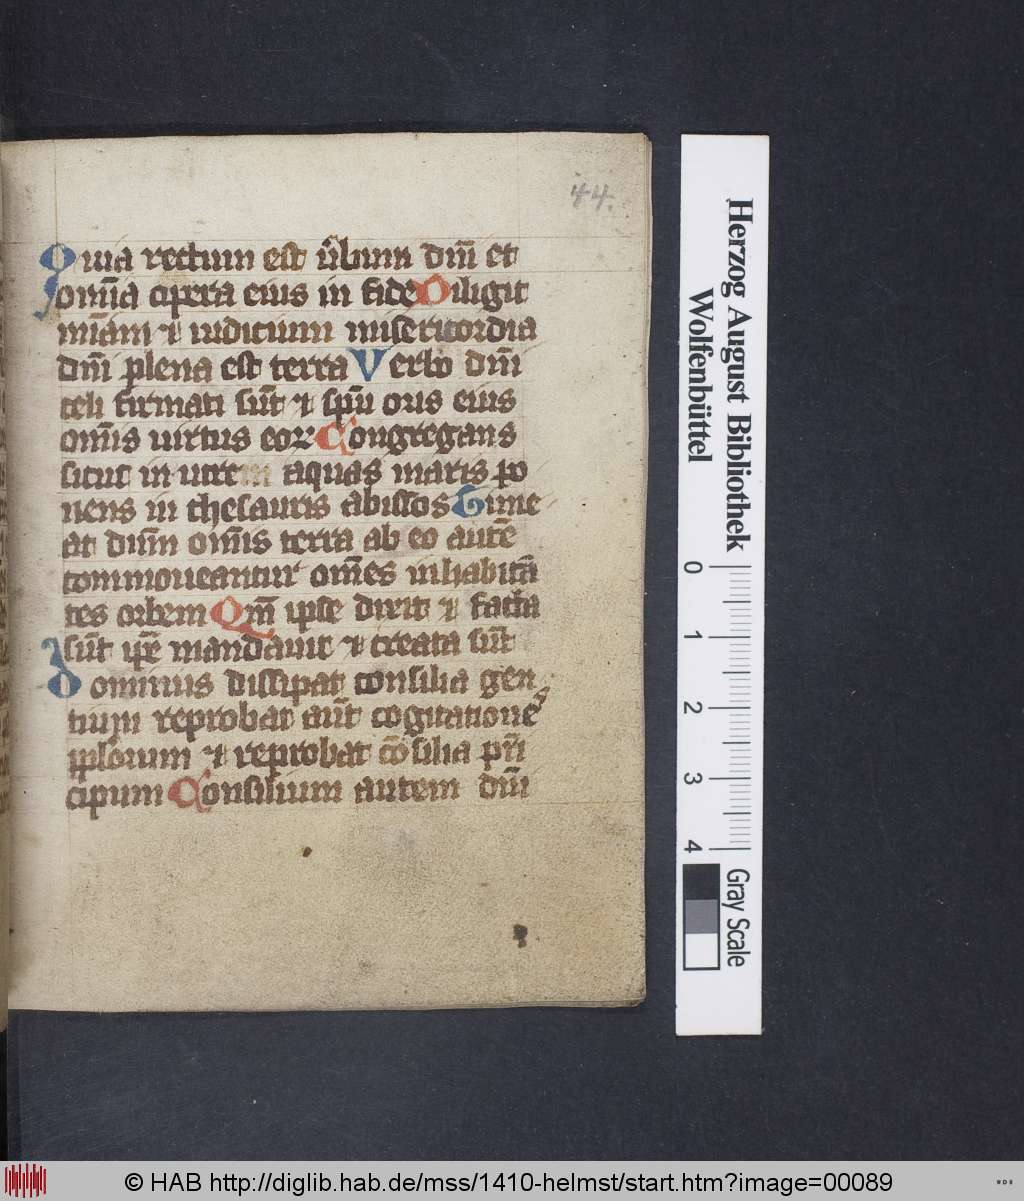 44.
Quia rectum est ũbum dn̄i et
om̄ia opera eius in fide Diligit
mīam ⁊ iudicium misericordia
dn̄i plena est terra Verbo dn̄i
celi firmati sūt ⁊ spū oris eius
om̄is uirtus eoꝝ Congregans
sicut in utrem aquas maris po
nens in thesauris abissos Time
at dūm om̄is terra ab eo autē
commoueantur om̄es inhabitā
tes orbem Qm̄ ipse dixit ⁊ facta
sūt ip̄e mandauit ⁊ creata sūt
Dominus dissipat consilia gen
tium reprobat aūt cogitationes
pplorum ⁊ reprobat cōsilia pn̄
cipum Consilium autem dn̄i
Herzog August Bibliothek
Wolfenbüttel
0 1 2 3 4
Gray Scale
© HAB http://diglib.hab.de/mss/1410-helmst/start.htm?image=00089
WDB